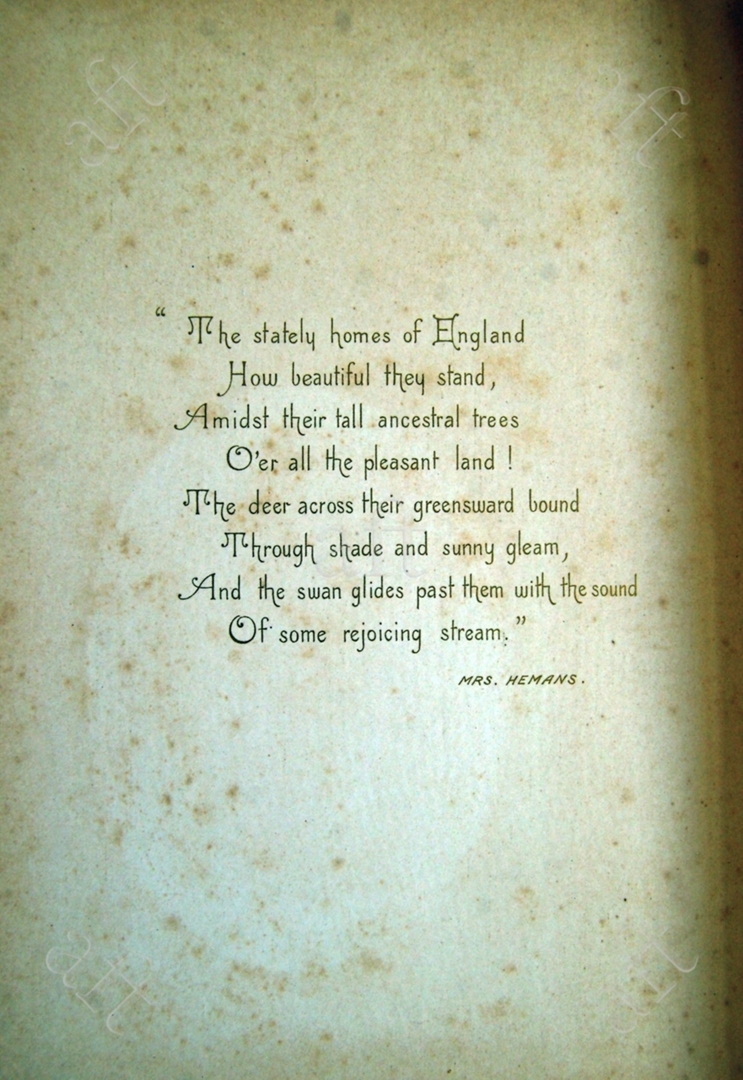 aft
aft
“ The stately homes of England
How beautiful they stand,
Amidst their tall ancestral trees
O'er all the pleasant land !
The deer across their greensward bound
Through shade and sunny gleam,
And the swan glides past them with the sound
Of some rejoicing stream.”
MRS. HEMANS.
aft
aft